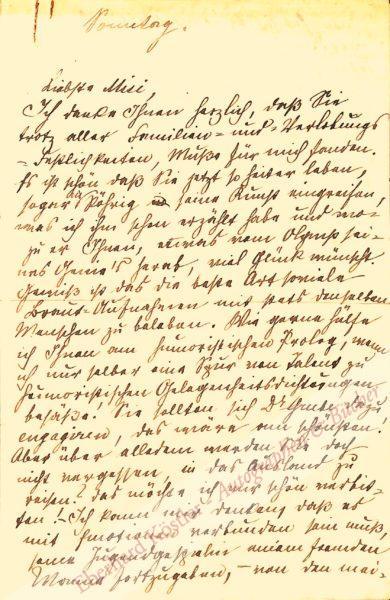 Sonntag.
Liebste Misi,
Ich danke Ihnen herzlich, daß Sie
trotz aller Familien- und Verlobungs
-Festlichkeiten, Muße für mich fanden.
Es ist schön, daß Sie jetzt so heiter leben,
sogar in seine Kunst eingreifen,
was ich ihm schon erzählt habe und wo-
zu er Ihnen, etwas vom Olymp sei-
nes Genie's herab, viel Glück wünscht
Gewiß ist das die beste Art soviele
Braut-Aufnahmen mit stets denselben
Menschen zu beleben. Wie gerne hälfe
ich Ihnen am humoristischen Prolog, wenn
ich nur selber eine Spur von Talent zu
humoristischen Gelegenheitsdichtungen
besäße. Sie sollten sich Dr zu
engagiren, das wäre am schönsten!
Aber über alledem werden Sie doch
nicht vergessen, in das Ausland zu
reisen! das möchte ich mir schön verbit-
ten! - Ich kann mir denken, daß es
mit Emotionen verbunden sein muß,
seine Jugendgespielin einem fremden
Manne fortzugeben, - von den mei-
Eberhard Köstler Autographen & Bücher